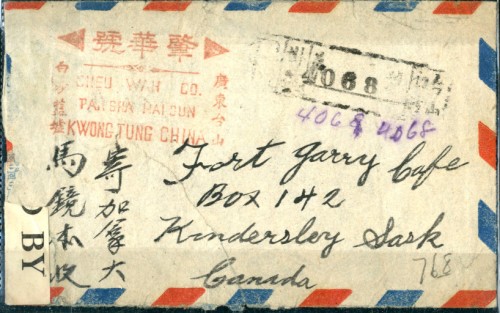 肇華號
廣東台山
白沙
SHEU WAH CO.
KWONG TUNG CHINA
4068
4068 4068
寄加拿大
馬鏡本收
Fort Garry Cafe
BOX 142
Kindersley Sask
Canada
768
D BY